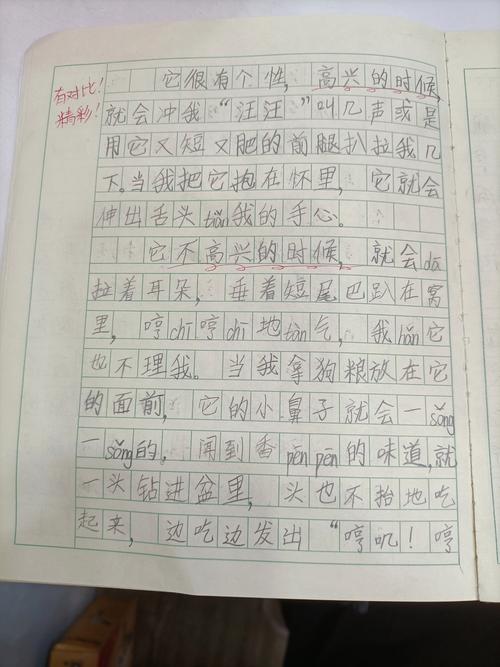 有对比！
精彩！
它很有个性，高兴的时候，
就会冲我“汪汪”叫几声或是
用它又短又肥的前腿扒拉我几
下。当我把它抱在怀里，它就会
伸出舌头tiǎn我的手心。
它不高兴的时候，就会dā
拉着耳朵，垂着短尾巴趴在窝
里，哼chī哼chī地tàn气，我hǎn它
也不理我。当我拿狗粮放在它
的面前，它的小鼻子就会一sǒng
一sǒng的，闻到香pēn pēn的味道，就
一头钻进盆里，头也不抬地吃
起来，边吃边发出“哼叽！哼